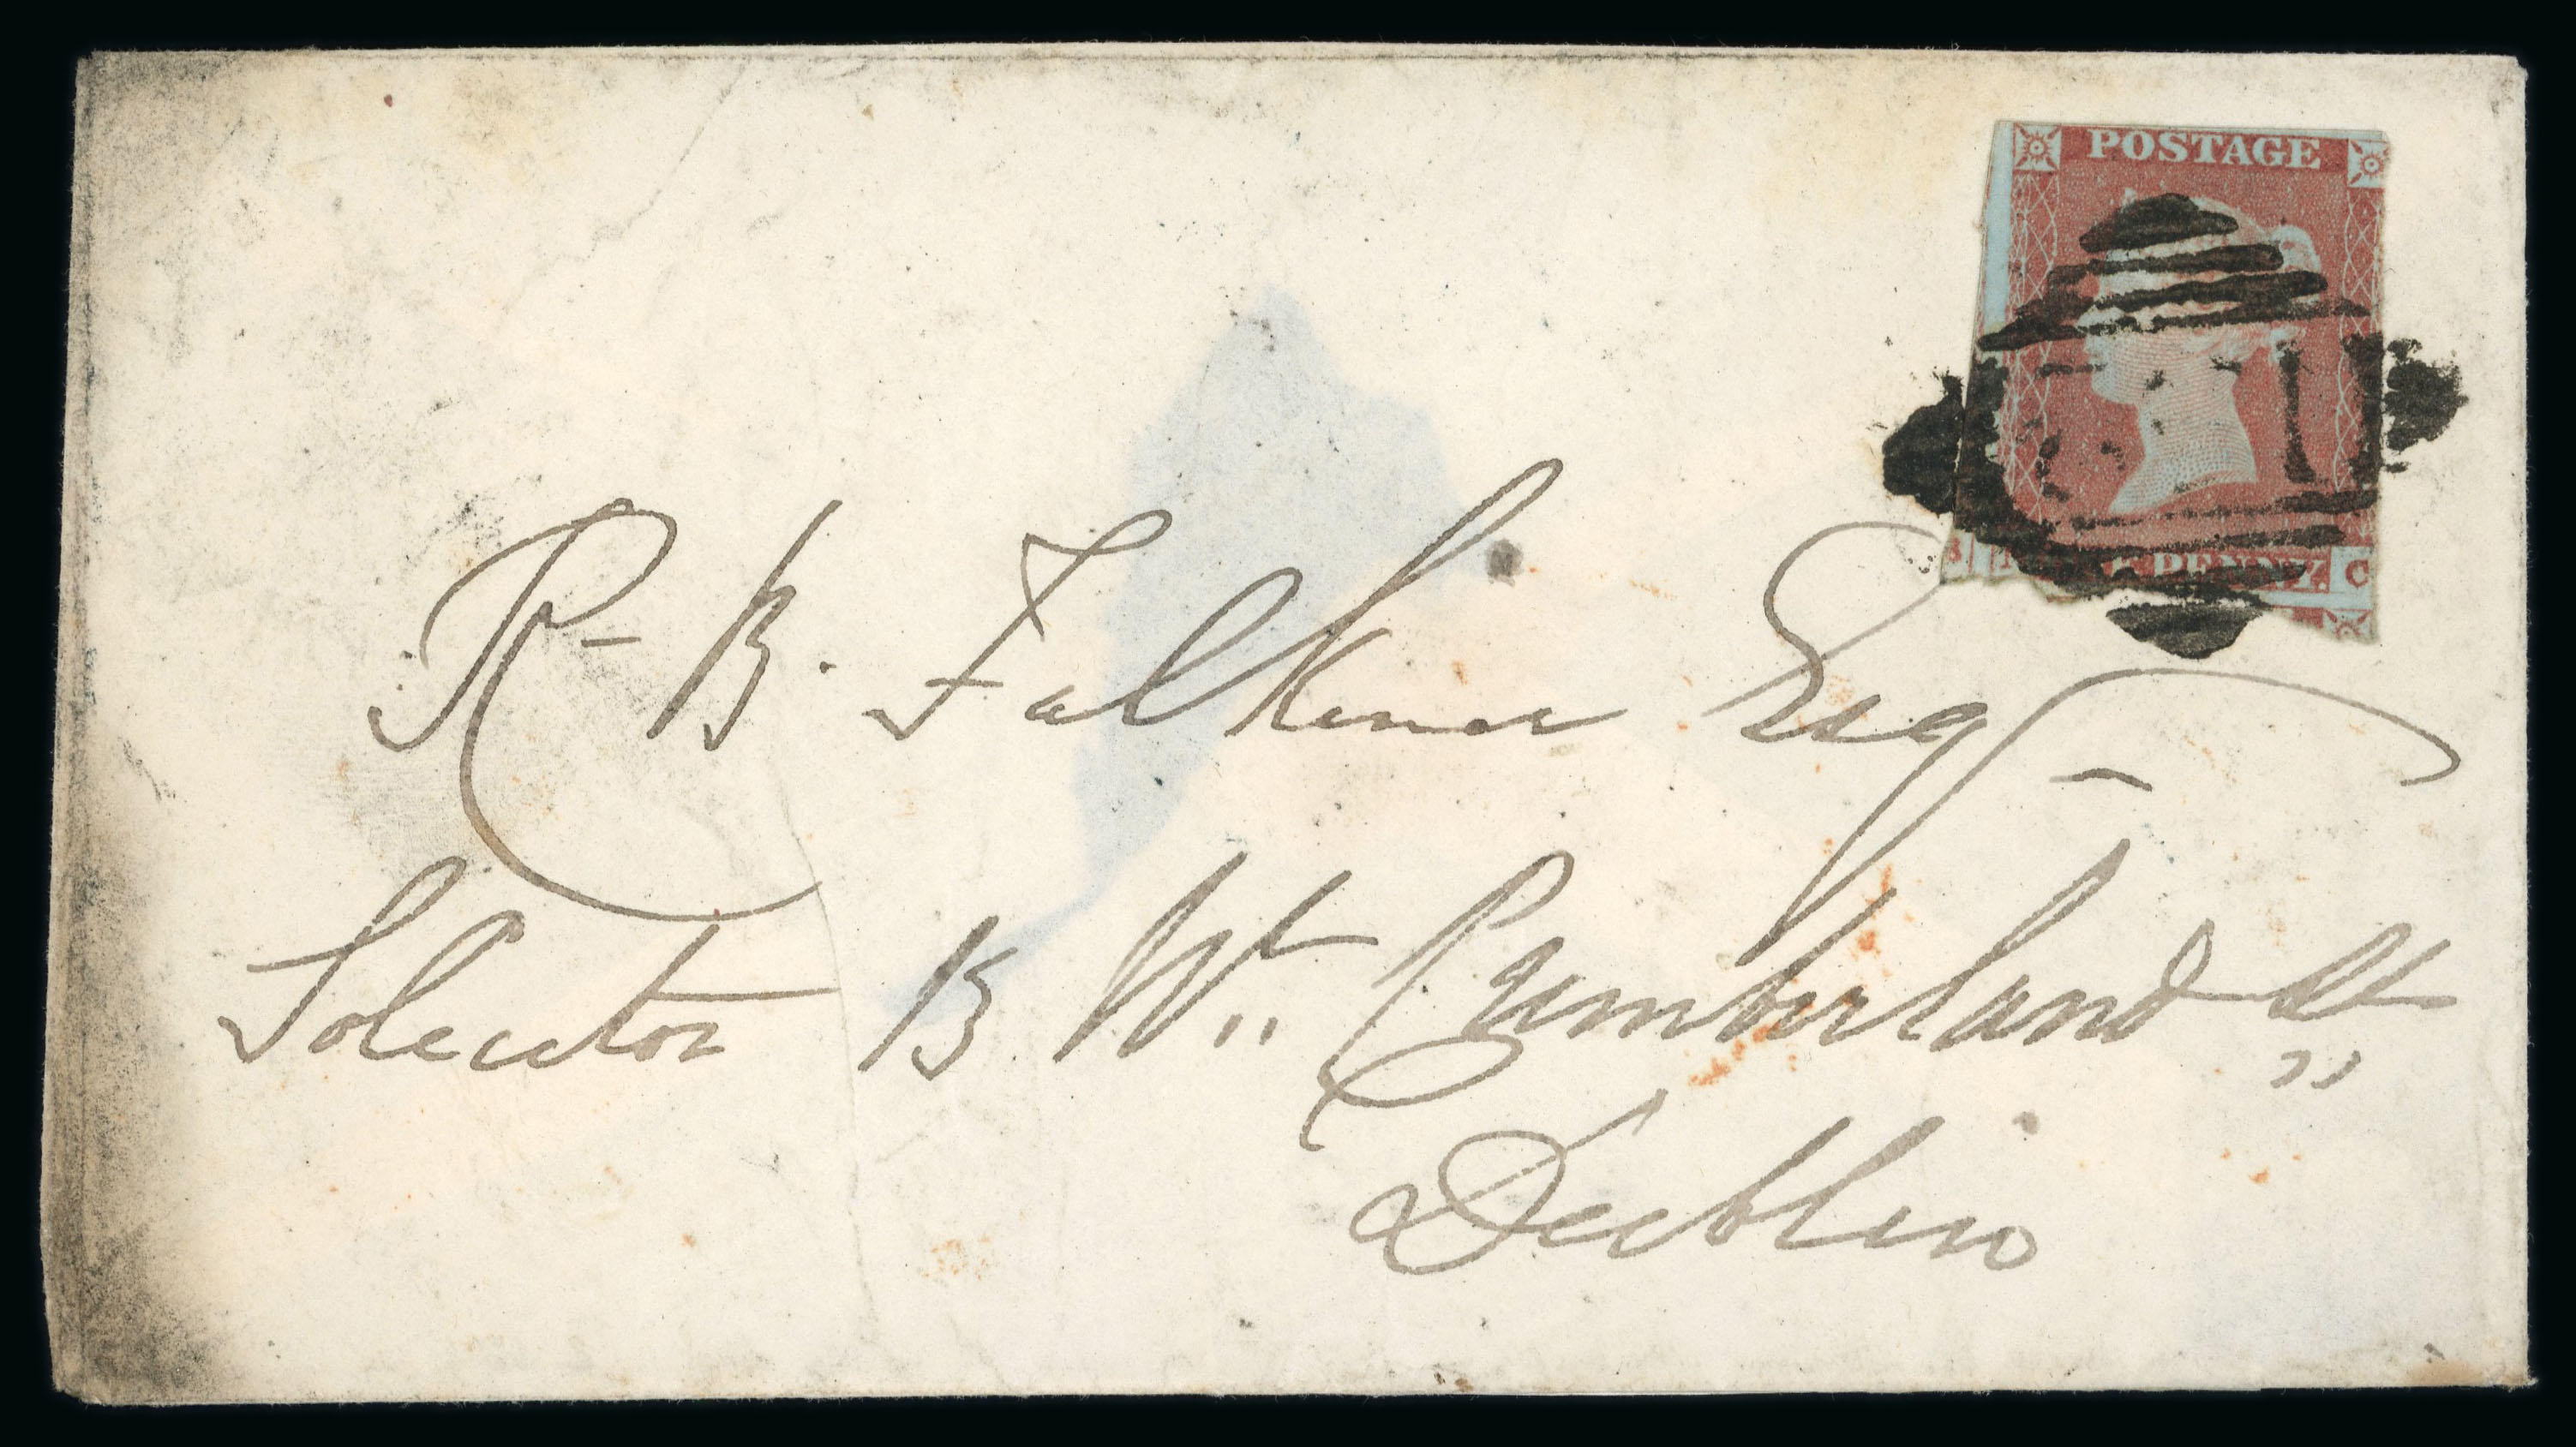 POSTAGE
B PENNY. C
R- B. Falkiner Esqr
Solicitor B Wm. Cumberland St
Dublin